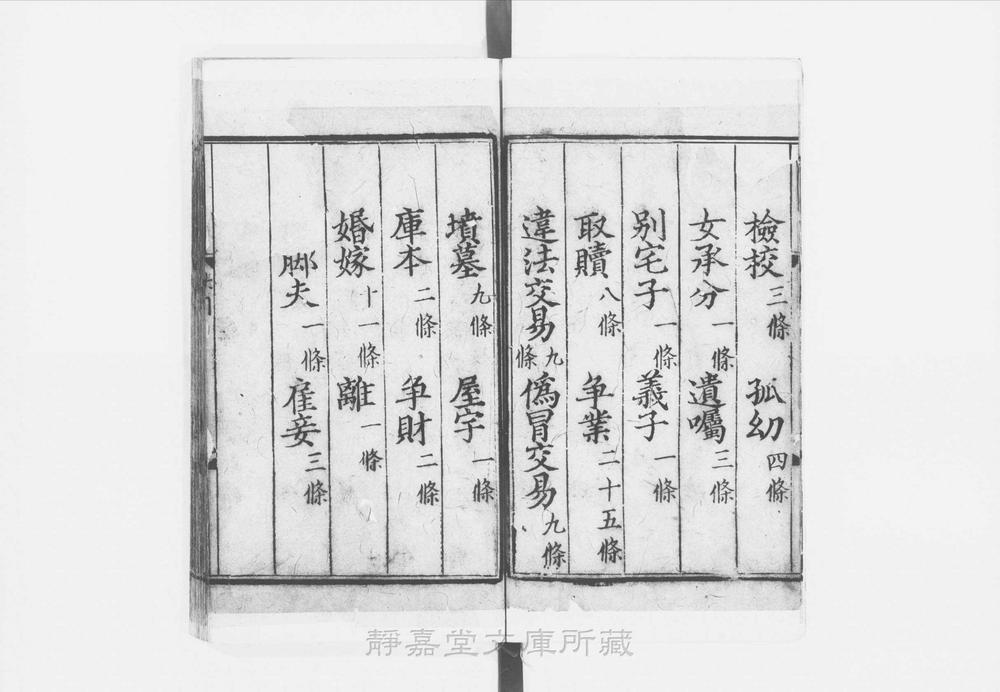 檢校三條　孤幼四條
女承分一條　遺囑三條
別宅子一條　義子一條
取贖八條　争業二十五條
違法交易九條　僞冒交易九條
墳墓九條　屋宇一條
庫本二條　争財二條
婚嫁十一條　離一條
脚夫一條　雇妾三條
靜嘉堂文庫所藏